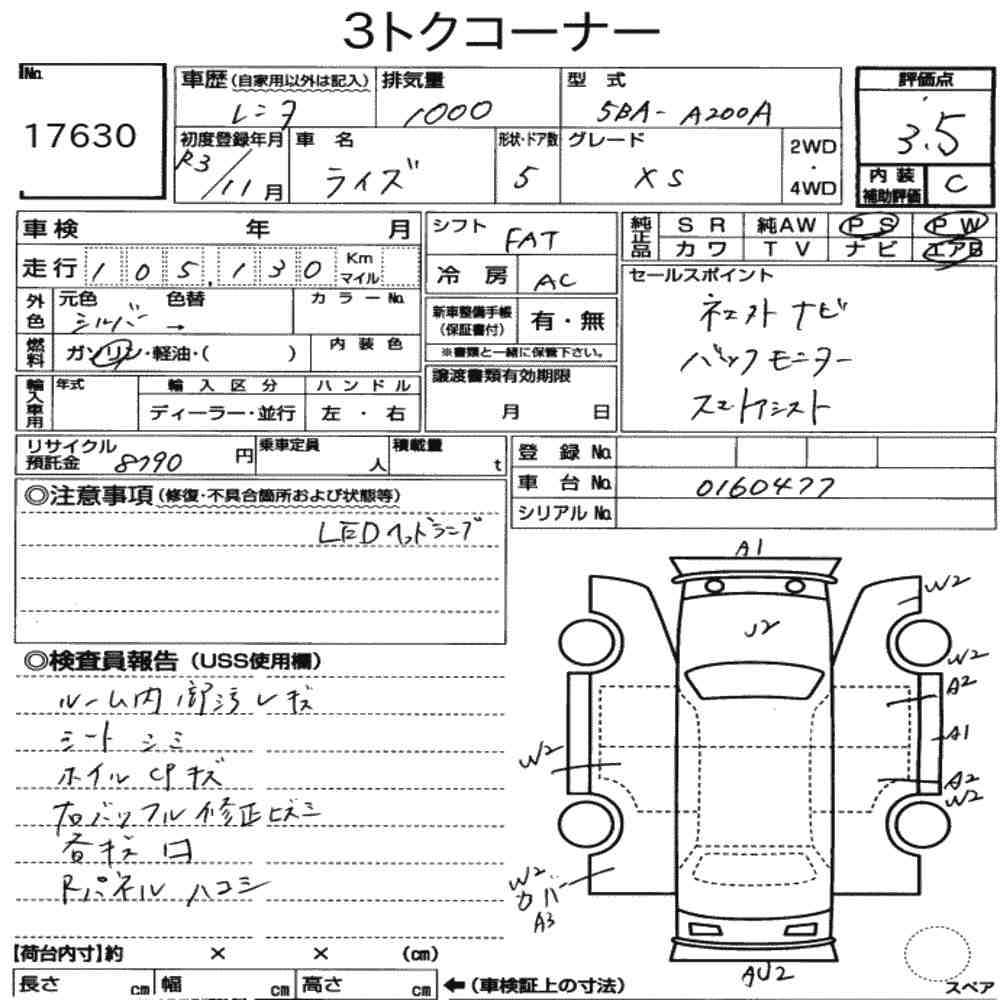 3トクコーナー
No.
17630
車歴(自家用以外は記入)
レンタ
排気量
1000
型式
5BA-A200A
評価点
3.5
初度登録年月
R3/11月
車名
ライズ
形状・ドア数
5
グレード
XS
2WD
・
4WD
内装
補助評価
C
車検 年 月
走行 105,130 Km マイル
外色
元色 色替
シルバー →
カラーNo.
燃料
ガソリン・軽油・( )
内装色
輸入車用
年式
輸入区分
ディーラー・並行
ハンドル
左・右
シフト
FAT
冷房
AC
新車整備手帳
(保証書付)
有・無
※書類と一緒に保管下さい。
譲渡書類有効期限
月 日
純正品
SR 純AW PS PW
カワ TV ナビ エアB
セールスポイント
ナビ
バックモニター
リサイクル
預託金 8790 円
乗車定員
人
積載量
t
登録No.
車台No. 0160477
シリアルNo.
◎注意事項(修復・不具合箇所および状態等)
LEDヘッドランプ
◎検査員報告(USS使用欄)
ルーム内部汚レキズ
シートシミ
ホイルCPキズ
右バッフル修正ヒズミ
各キズ凹
Rパネルハコシ
A1
W2
U2
W2
A2
A1
W2
A2
W2
W2
カバー
A3
AU2
スペア
【荷台内寸】約 × × (cm)
長さ cm 幅 cm 高さ cm ←(車検証上の寸法)